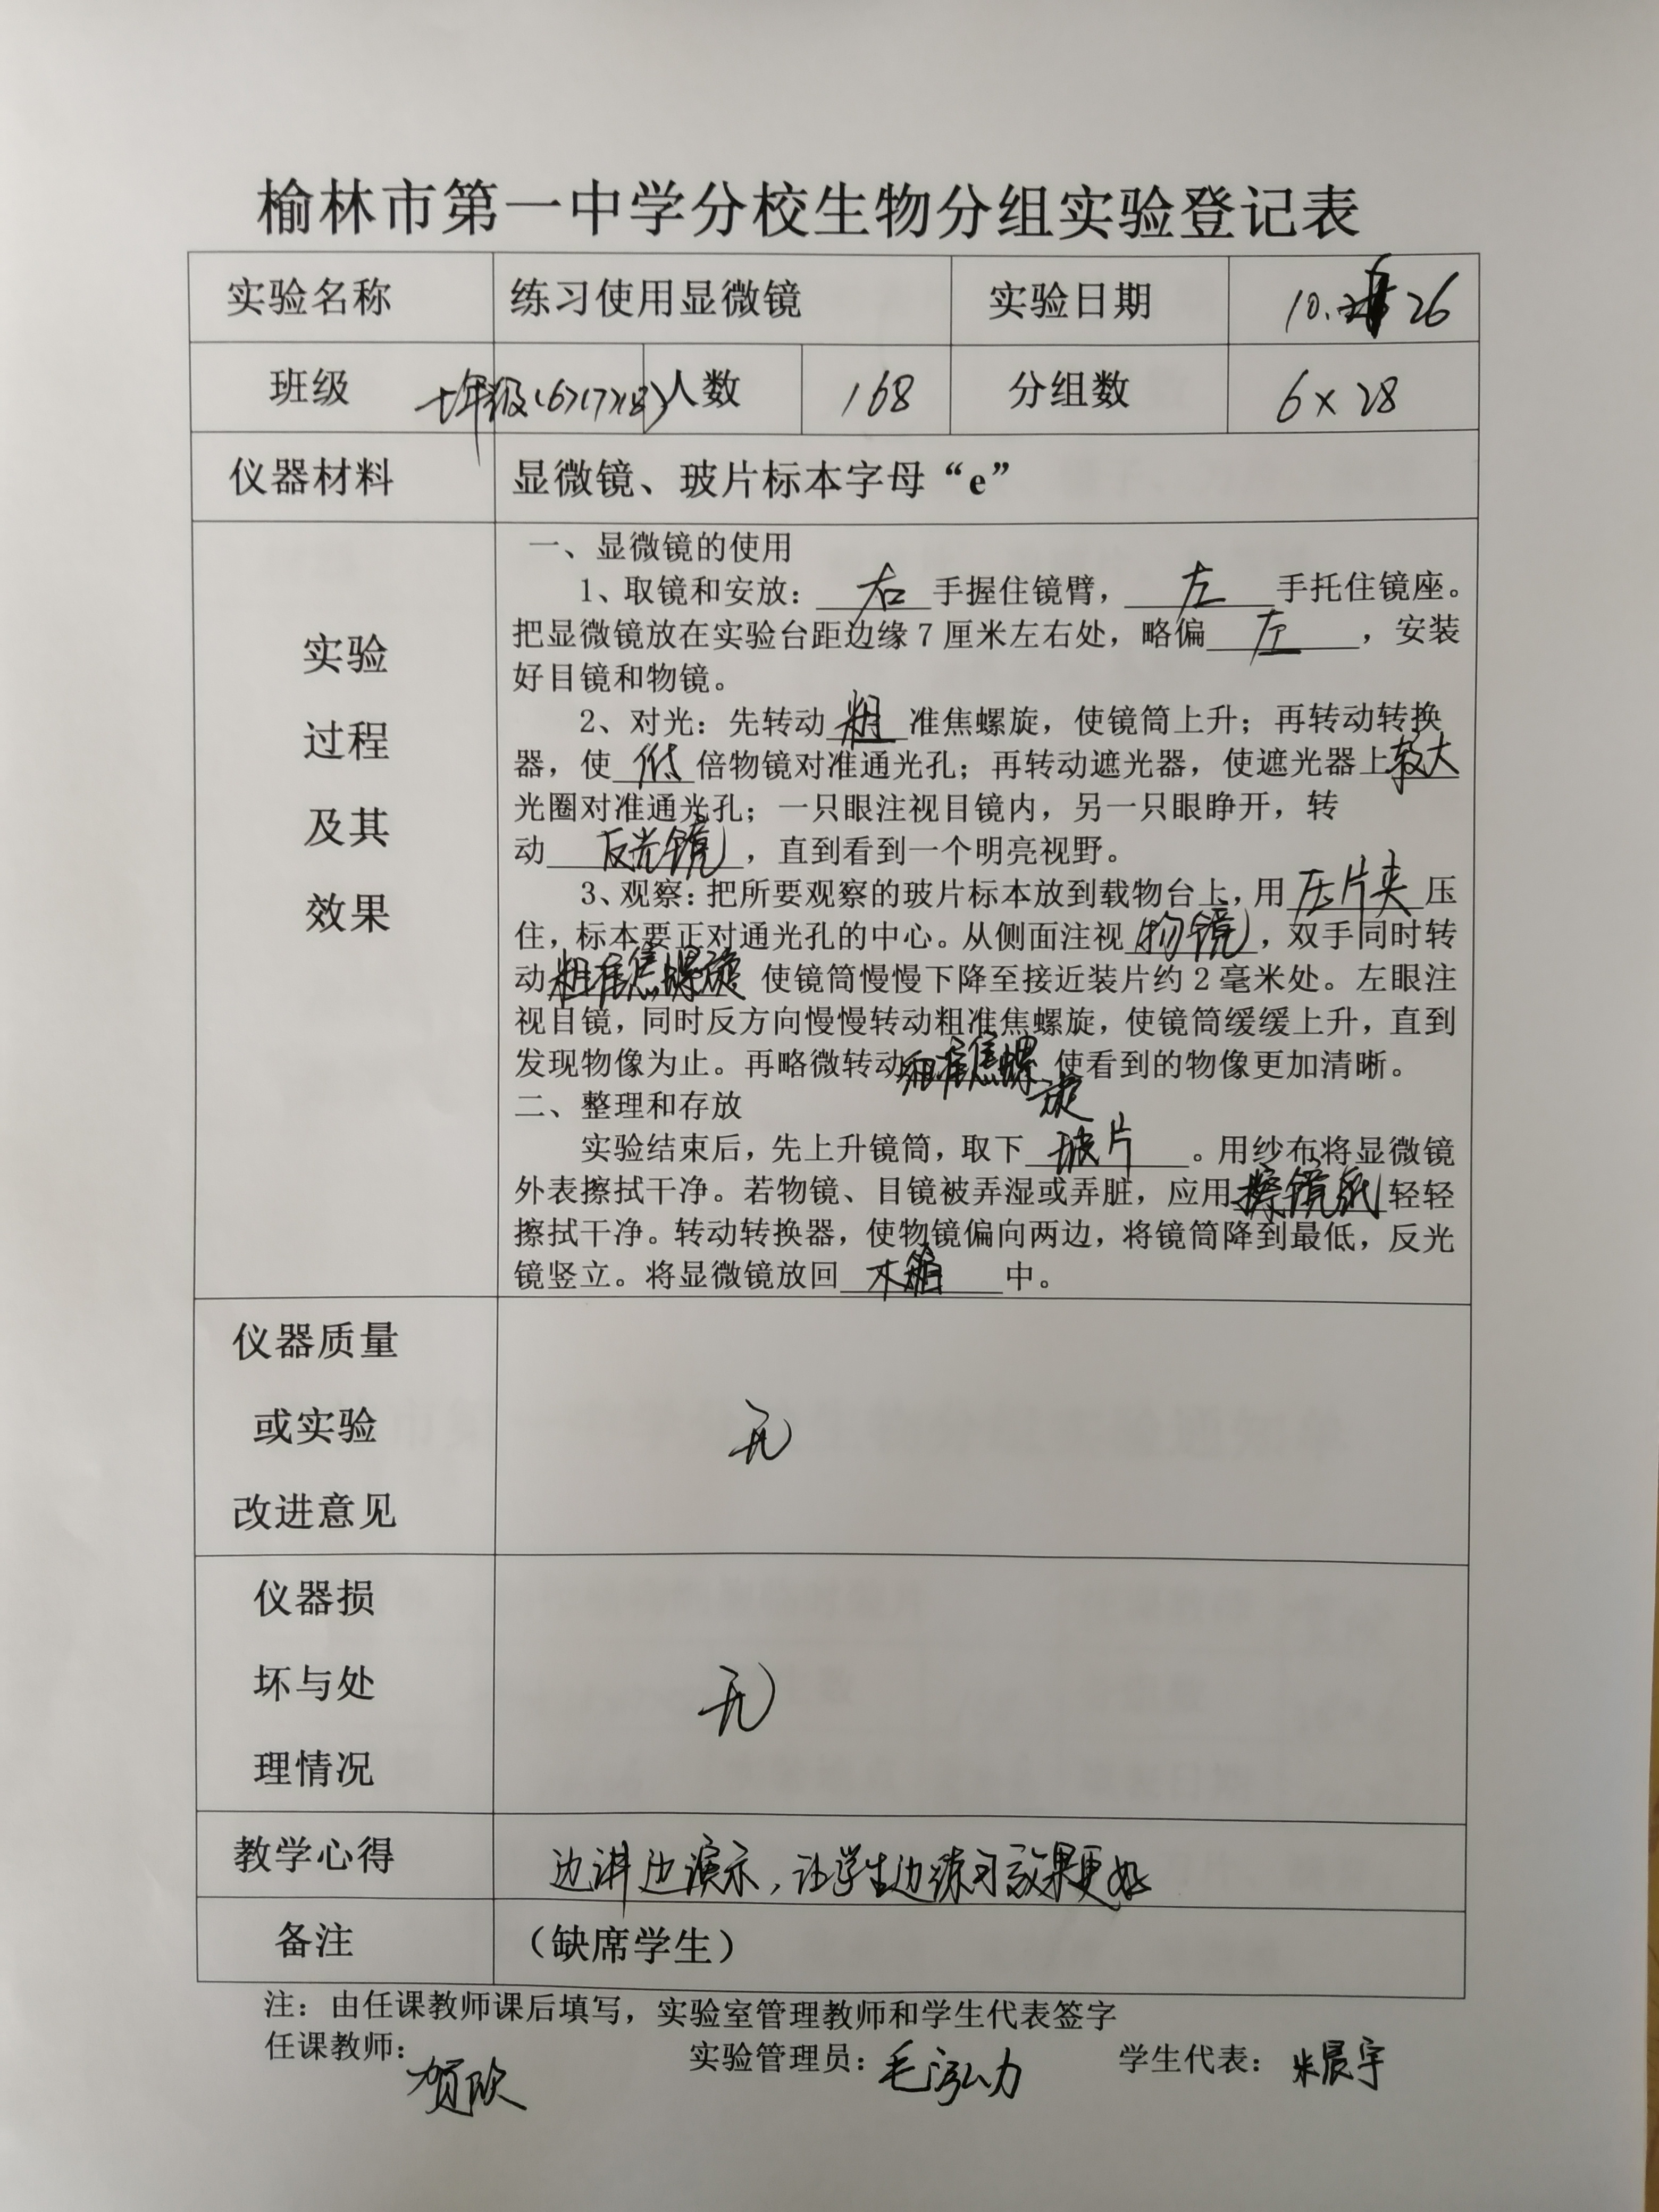 榆林市第一中学分校生物分组实验登记表
实验名称 练习使用显微镜 实验日期 10. 26
班级 七年级(6)(7)(8) 人数 168 分组数 6×28
仪器材料 显微镜、玻片标本字母“e”
实验
过程
及其
效果
一、显微镜的使用
1、取镜和安放：右手握住镜臂，左手托住镜座。
把显微镜放在实验台距边缘7厘米左右处，略偏左，安装
好目镜和物镜。
2、对光：先转动粗准焦螺旋，使镜筒上升；再转动转换
器，使低倍物镜对准通光孔；再转动遮光器，使遮光器上较大
光圈对准通光孔；一只眼注视目镜内，另一只眼睁开，转
动反光镜，直到看到一个明亮视野。
3、观察：把所要观察的玻片标本放到载物台上，用压片夹压
住，标本要正对通光孔的中心。从侧面注视物镜，双手同时转
动粗准焦螺旋 使镜筒慢慢下降至接近装片约2毫米处。左眼注
视目镜，同时反方向慢慢转动粗准焦螺旋，使镜筒缓缓上升，直到
发现物像为止。再略微转动细准焦螺旋 使看到的物像更加清晰。
二、整理和存放
实验结束后，先上升镜筒，取下玻片。用纱布将显微镜
外表擦拭干净。若物镜、目镜被弄湿或弄脏，应用擦镜纸轻轻
擦拭干净。转动转换器，使物镜偏向两边，将镜筒降到最低，反光
镜竖立。将显微镜放回木箱中。
仪器质量
或实验
改进意见
无
仪器损
坏与处
理情况
无
教学心得 边讲边演示，让学生边练习效果更好
备注 （缺席学生）
注：由任课教师课后填写，实验室管理教师和学生代表签字
任课教师：贺欣 实验管理员：毛泓力 学生代表：朱晨宇